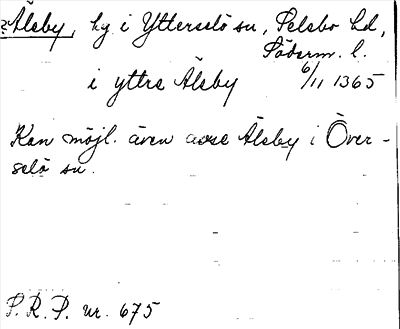 ?Älsby, by i Ytterselö sn, Selebo hd,
Söderm. l.
i yttre Älsby 6/11 1365
Kan möjl. även avse Älsby i Över-
selö sn.
P.R.P. nr. 675